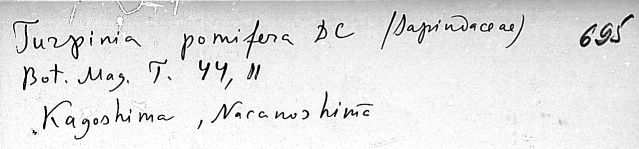 Turpinia pomifera DC (Sapindaceae) 695
Bot. Mag. T. 44, 11
Kagoshima, Nacanoshima